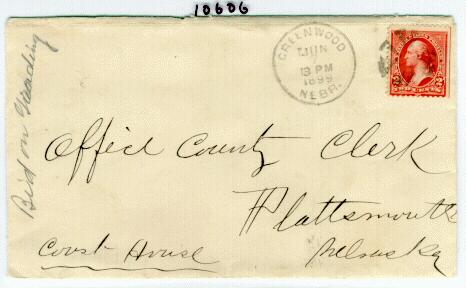 10606
GREENWOOD
JUN
13 PM
1899
NEBR.
2 2
TWO CENTS
Bid on Grading
Office County Clerk
Plattsmouth
Court House
Nebraska